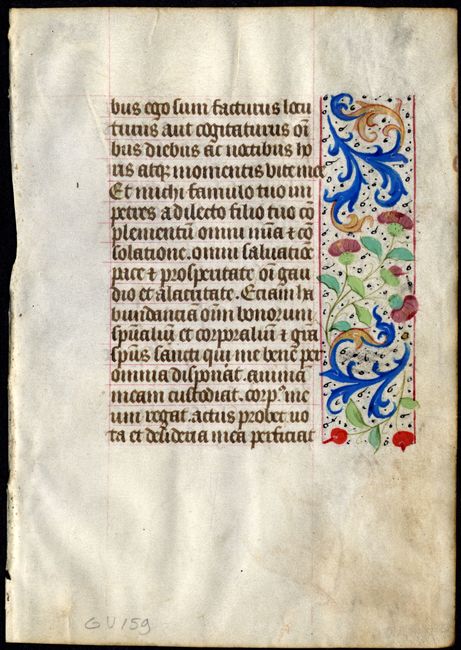 bus ego sum facturus locu
turus aut cogitaturus oī
bus diebus ac noctibus ho
ris atqꝫ momentis vite mee
Et michi famulo tuo im
petres a dilecto filio tuo cō
plementū omni mīa ⁊ cō
solatione. omni saluatiōe
pace ⁊ prosperitate oī gau
dio et alacritate. Etiam ha
bundantia oīm bonorum
spūalium et corporalium ⁊ grā
spūs sancti qui me bene per
omnia disponat. animā
meam custodiat. corpꝰ me
um regat. actus probet uo
ta et desideria mea perficiat
GU159